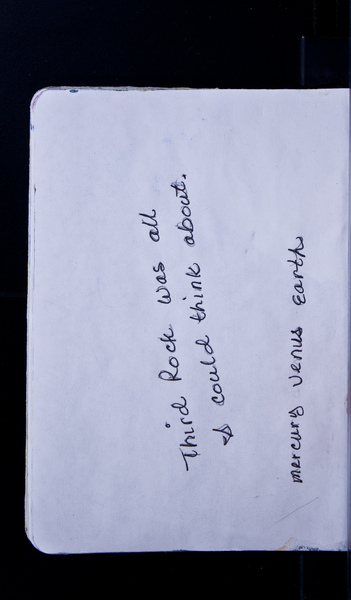 Third Rock was all
I could think about.
mercury venus Earth